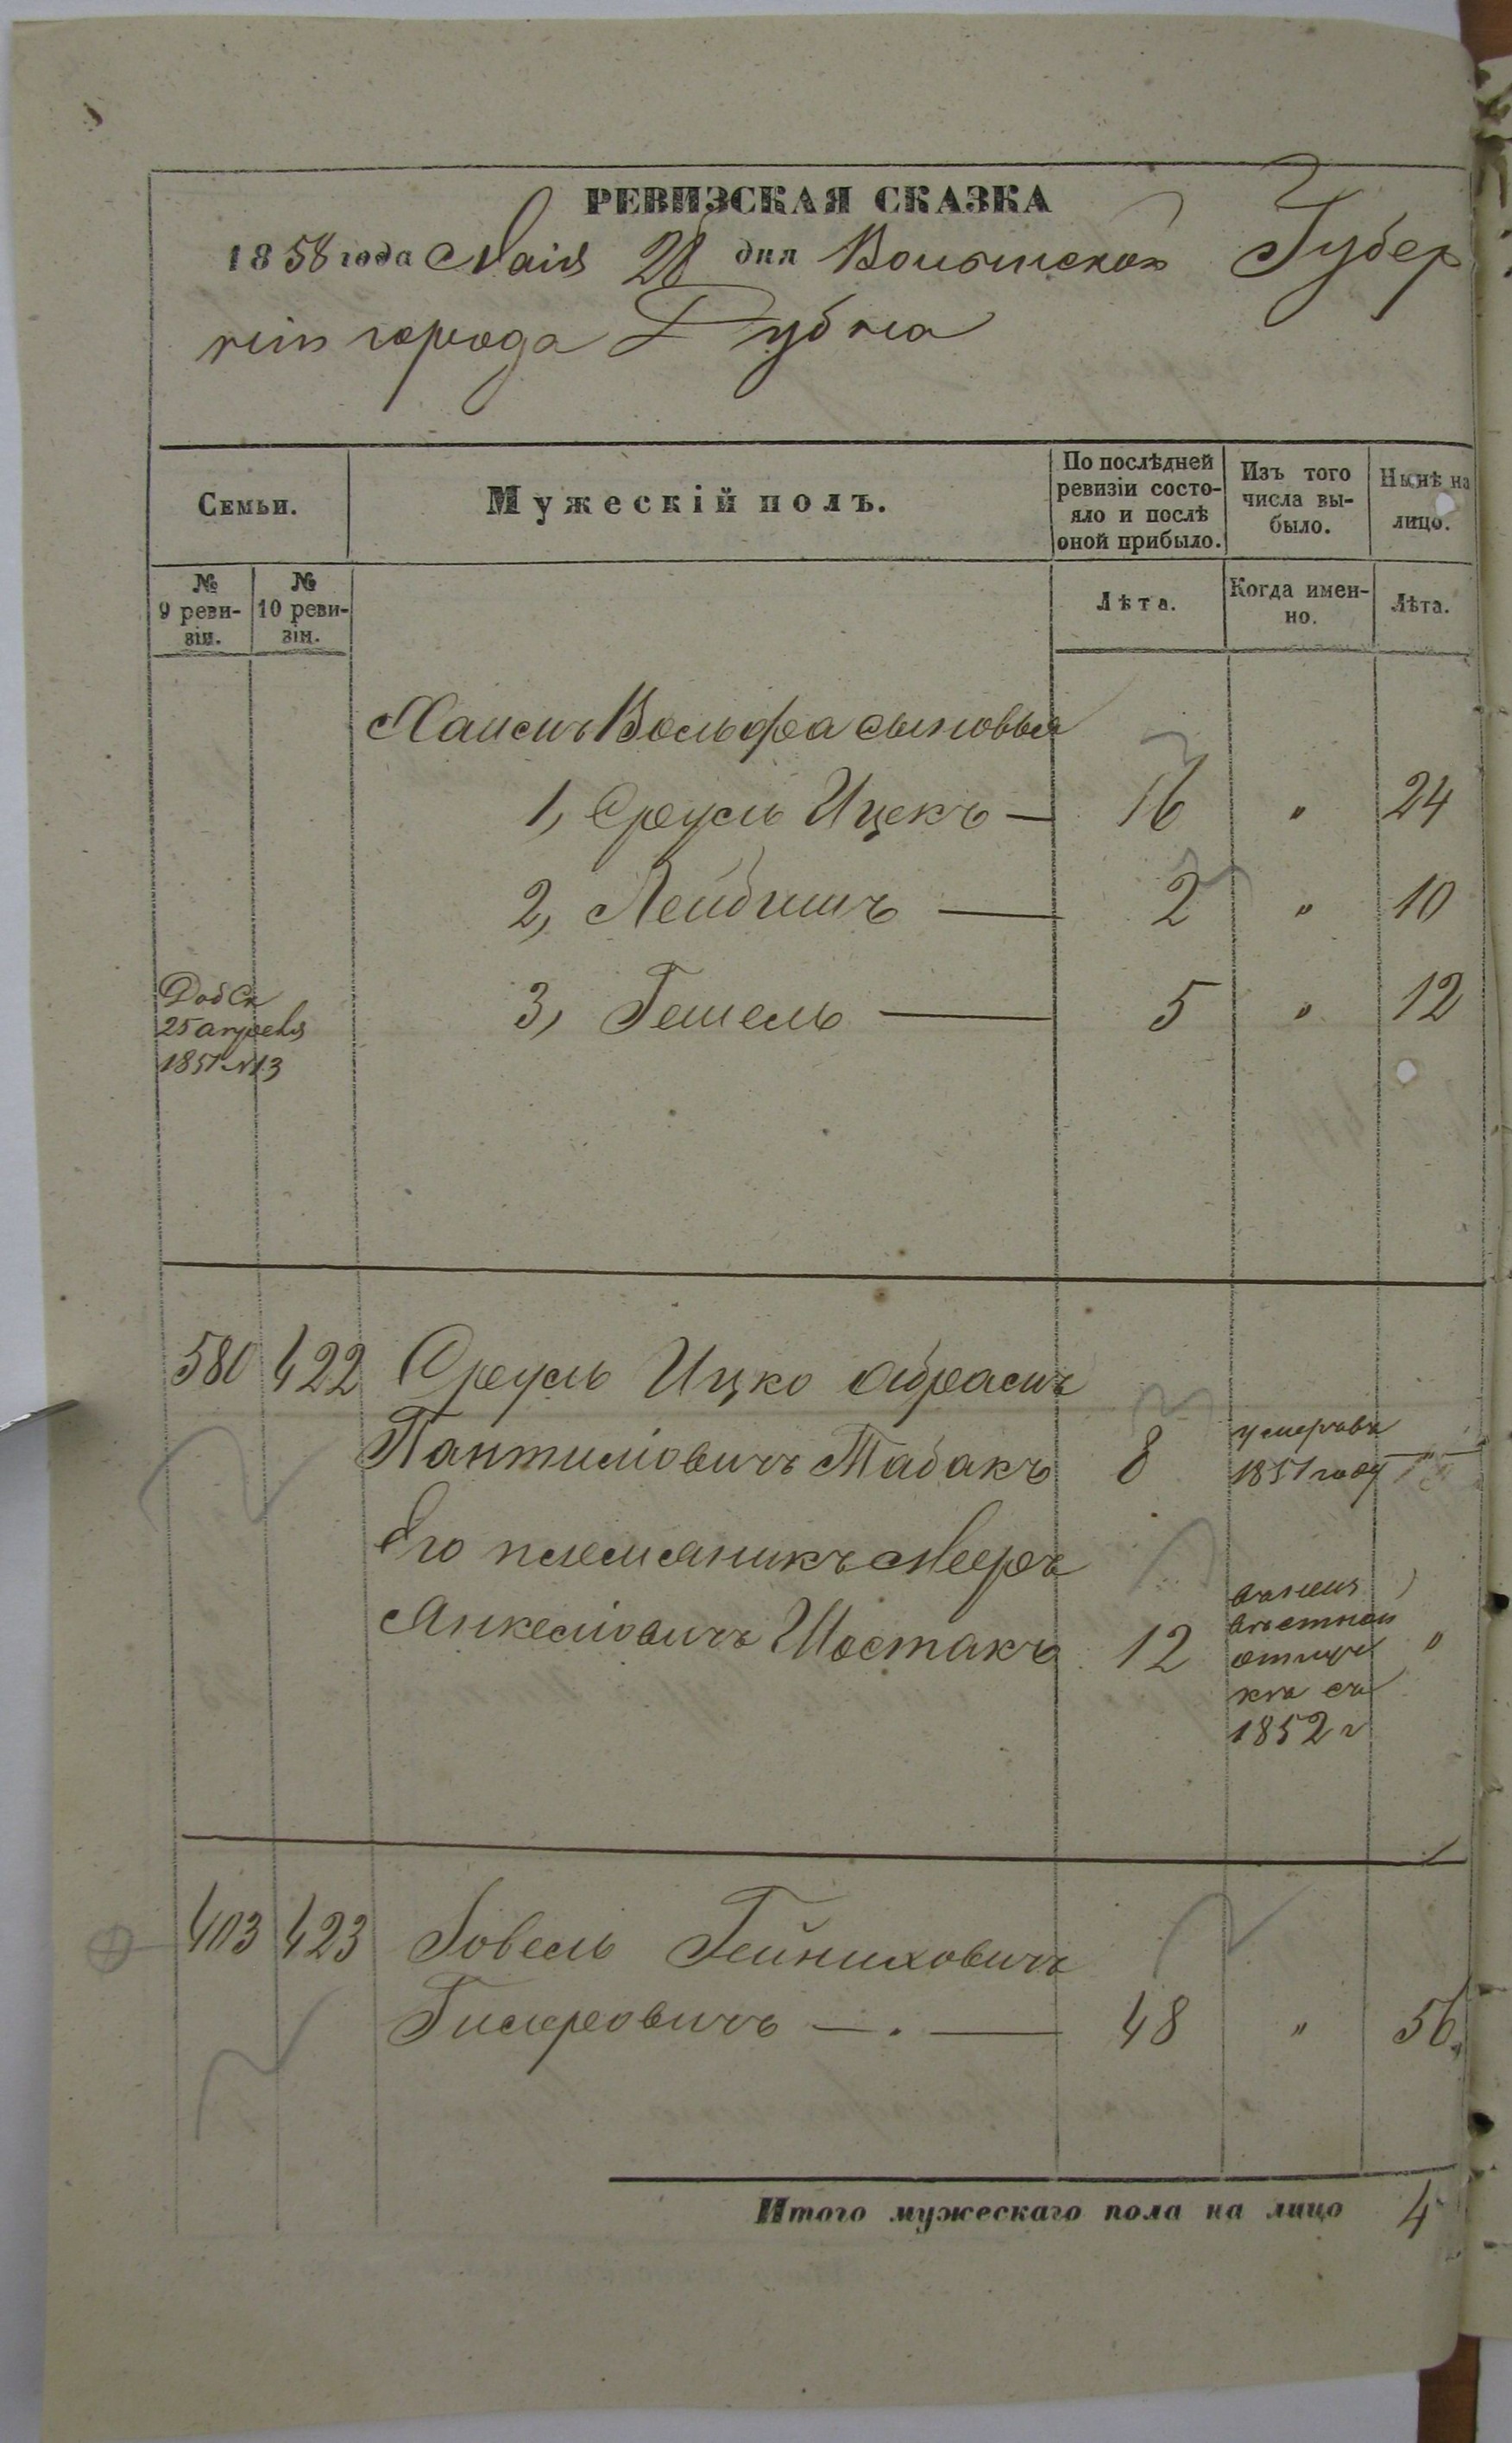 РЕВИЗСКАЯ СКАЗКА
1858 года Маія 28 дня Волынской Губер
ніи города Дубна
Семьи.
Мужескій полъ.
По послѣдней ревизіи состо-
яло и послѣ
оной прибыло.
Изъ того
числа вы-
было.
Нынѣ на
лицо.
№
9 реви-
зіи.
№
10 реви-
зіи.
Лѣта.
Когда имен-
но.
Лѣта.
Вольфа сыновья
1, Сруль Ицекъ — 16 " 24
2, Лейбишъ — 2 " 10
3, Гешель — 5 " 12
Доб Ск
25 апреля
1851 №13
580 422 Сруль Ицко Абрамъ
Табакъ 8 умеръ въ
1851 году
Его племяникъ Мееръ
Янкеліовичъ Шостакъ 12 "
1852 г
403 423 Іовель Гейниховичъ
— . — 48 " 56
Итого мужескаго пола на лицо 4